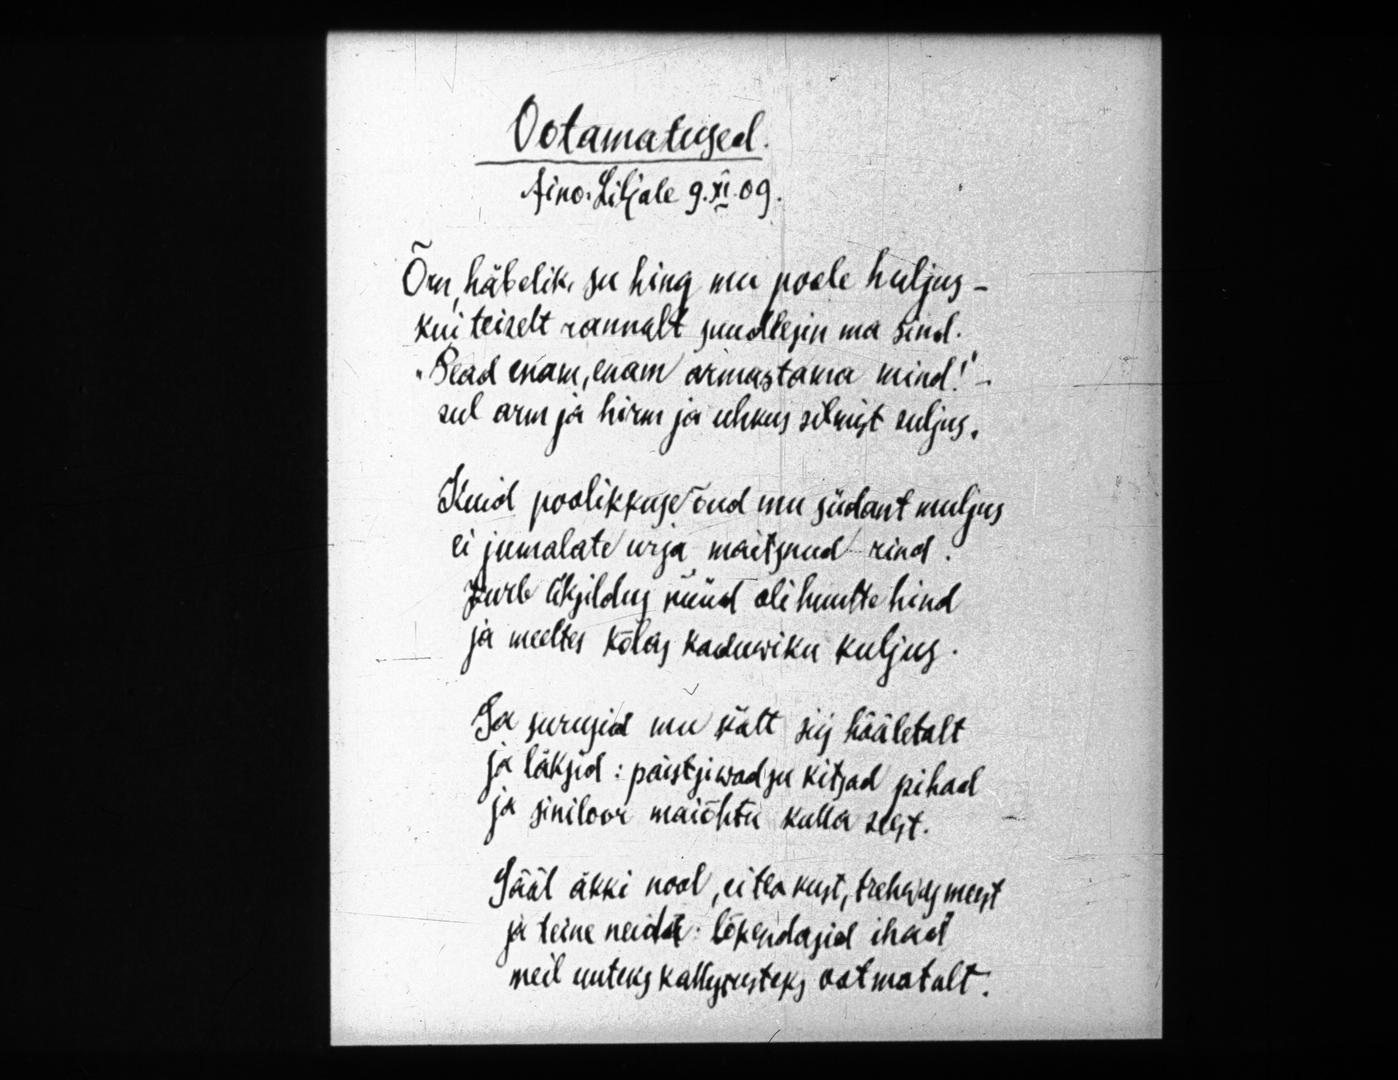 Ootamatused.
Aino-Liljale 9.XI.09.
Õrn, häbelik, su hing mu poole huljus –
kui teiselt rannalt suudlesin ma sind.
"Pead enam, enam armastama mind!" –
sul arm ja hirm ja uhkus silmist suljus.
Kuid poolikkuse õud mu südant muljus
ei jumalate urja maitsnud rind.
kurb üksildus nüüd oli huulte hind
ja meeltes kõlas kaduwiku kuljus.
Sa surusid mu kätt siis hääletalt
ja läksid: paistsiwad su kitsad pihad
ja siniloor maiõhtu kulla seest.
Sääl äkki nool, ei tea kust, trehwas meest
ja teine neidu: lõkendasid ihad
meil uuteks kallistusteks ootmatalt.